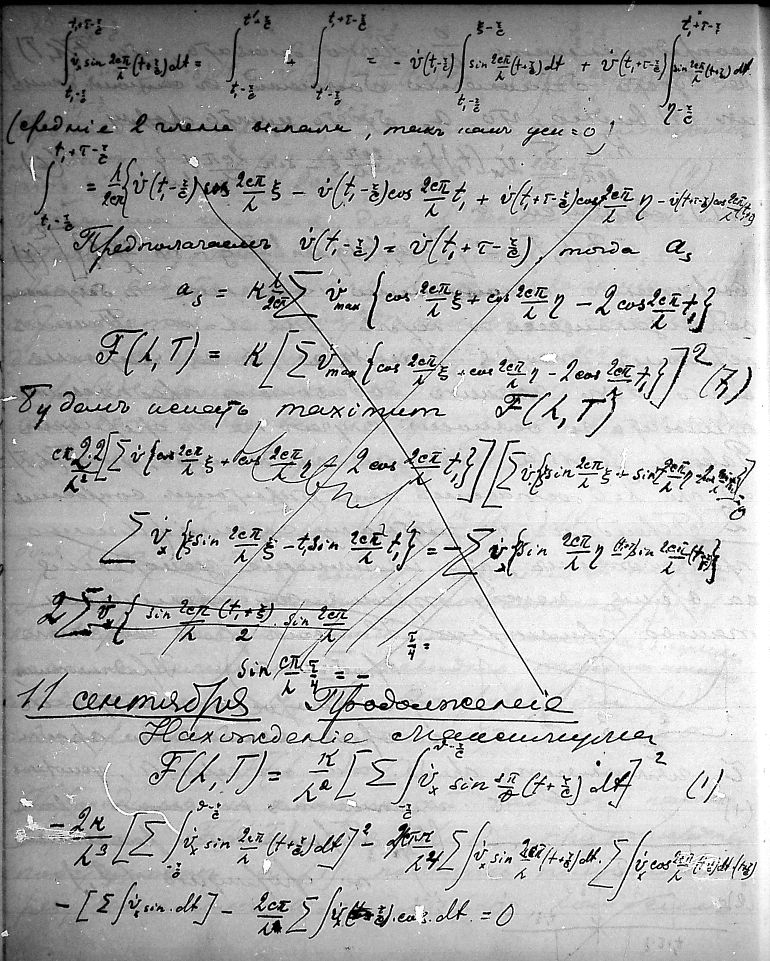 ∫_{t₁-r/c}^{t₁+τ-r/c} v̇ₓ sin 2cπ/λ (t+r/c) dt = ∫_{t₁-r/c}^{t'-r/c} + ∫_{t'-r/c}^{t₁+τ-r/c} = - v̇(t₁-r/c) ∫_{t₁-r/c}^{ξ-r/c} sin 2cπ/λ (t+r/c) dt + v̇(t₁+τ-r/c) ∫_{η-r/c}^{t₁+τ-r/c} sin 2cπ/λ (t+r/c) dt
(средніе 2 члена, такъ какъ уск = 0)
∫_{t₁-r/c}^{t₁+τ-r/c} = λ/2cπ {v̇(t₁-r/c) cos 2cπ/λ ξ - v̇(t₁-r/c) cos 2cπ/λ t₁ + v̇(t₁+τ-r/c) cos 2cπ/λ η - v̇(t₁+τ-r/c) cos 2cπ/λ
Предполагаемъ v̇(t₁-r/c) = v̇(t₁+τ-r/c), тогда aₛ
aₛ = K λ/2cπ Σ v̇max {cos 2cπ/λ ξ + cos 2cπ/λ η - 2 cos 2cπ/λ t₁}
F(λ,T) = K [Σ v̇max {cos 2cπ/λ ξ + cos 2cπ/λ η - 2 cos 2cπ/λ t₁}]² (7)
Будемъ искать maximum F(λ,T)
cπ 2.2/λ² [Σ v̇ {cos 2cπ/λ ξ + cos 2cπ/λ η - 2 cos 2cπ/λ t₁}] [Σ v̇ {ξ sin 2cπ/λ ξ + sin 2cπ/λ η
Σ v̇ₓ {ξ sin 2cπ/λ ξ - t₁ sin 2cπ/λ t₁} = - Σ v̇ₓ {sin 2cπ/λ η (t₁+τ) sin 2cπ/λ (t₁+τ)}
2 Σ v̇ₓ { sin 2cπ/λ (t₁+ξ)/2 . sin 2cπ/λ
τ/4 =
sin cπ/λ τ/4 = -
11 сентября Продолженіе
Нахожденіе максимума
F(λ,T) = K/λ² [Σ ∫_{-r/c}^{ϑ-r/c} v̇ₓ sin (t+r/c) dt]² (1)
- 2K/λ³ [Σ ∫_{-r/c}^{ϑ-r/c} v̇ₓ sin 2cπ/λ (t+r/c) dt]² - Σ ∫ v̇ₓ sin 2cπ/λ (t+r/c) dt. Σ ∫ v̇ₓ cos 2cπ/λ (t+r/c) dt (t+r/c)
- [Σ ∫ v̇ₓ sin. dt] - 2cπ/λ Σ ∫ v̇ₓ (t+r/c). cos. dt. = 0